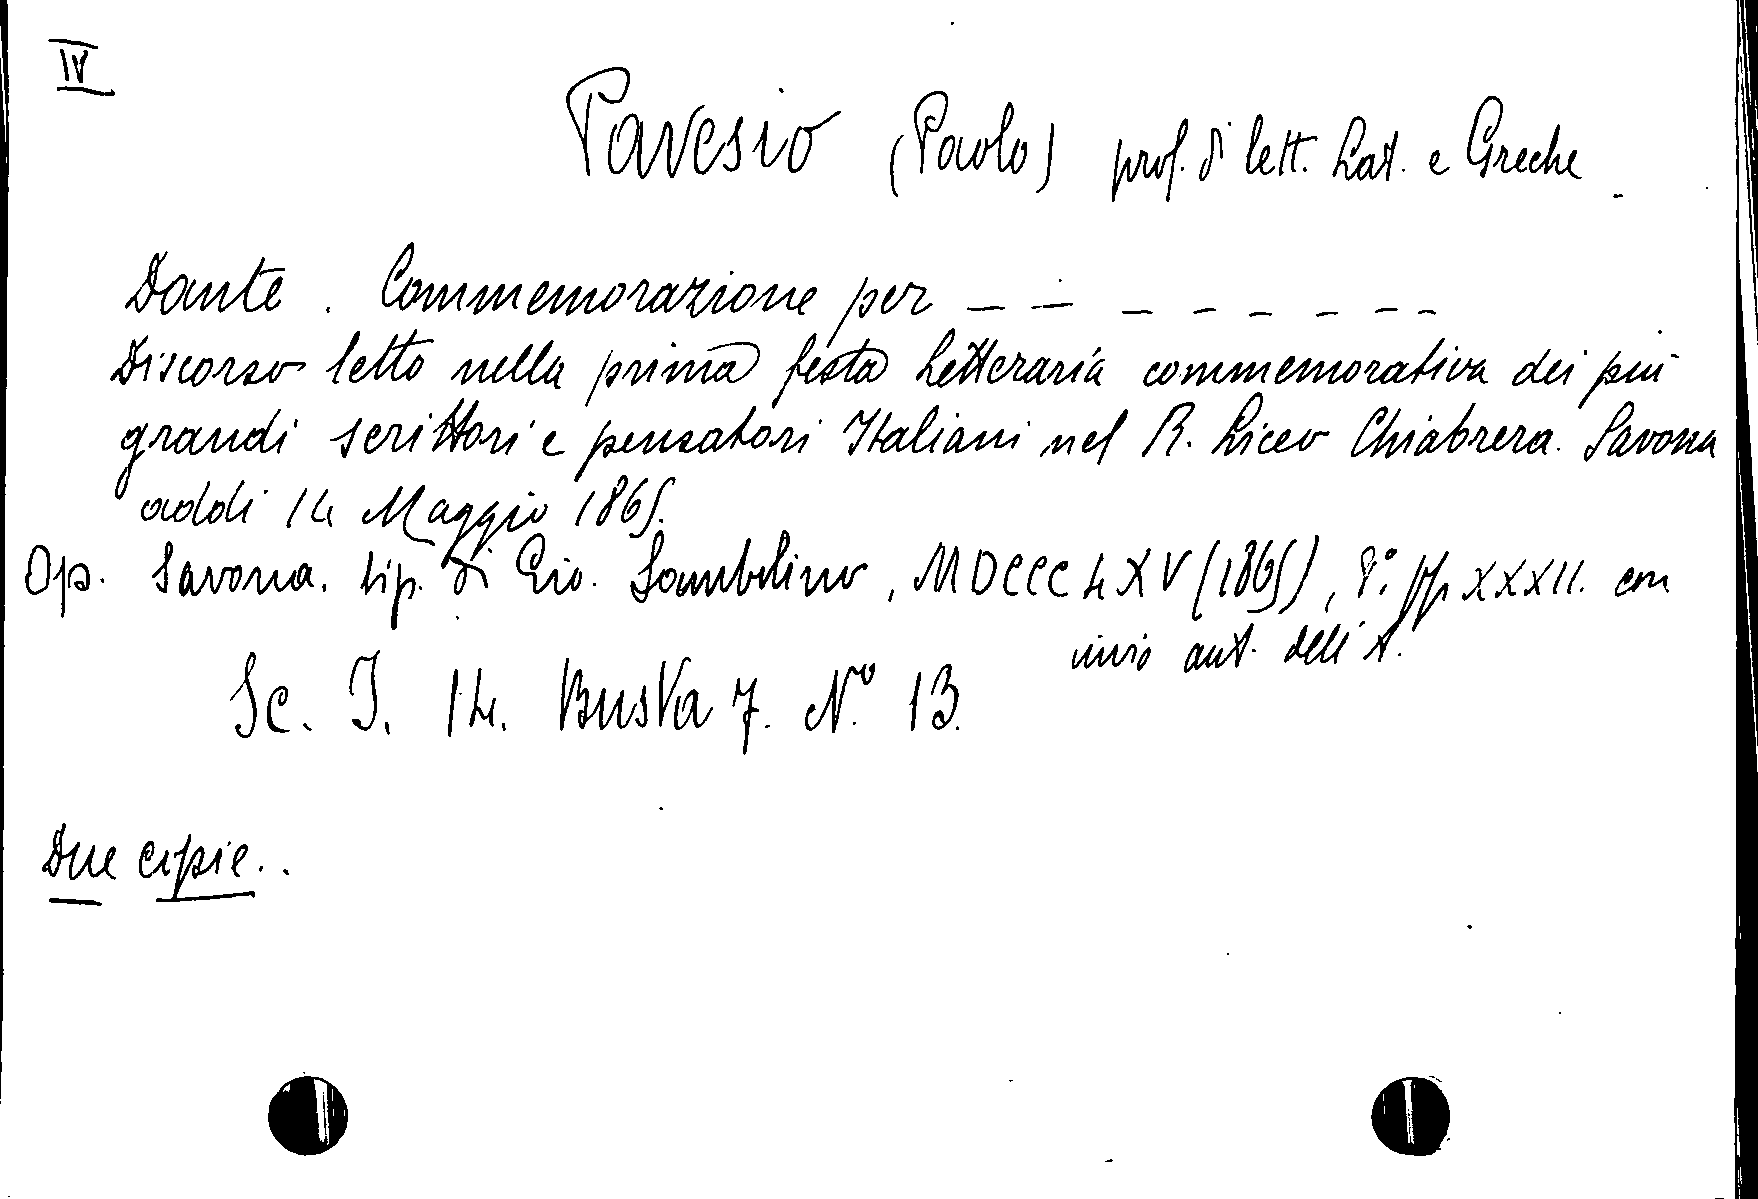 IV
Pavesio (Paolo) prof. di lett. Lat. e Greche
Dante. Commemorazione per _ _ _ _ _ _ _ _
Discorso letto nella prima festa Letteraria commemorativa dei più
grandi scrittori e pensatori Italiani nel R. Liceo Chiabrera. Savona
addi 14 Maggio 1865.
Op. Savona. tip. di Gio. Sambolino, MDCCCLXV (1865), 8°. pp. XXXII. con
invio aut. dell'A.
Sc. I. 14. Busta 7. N.° 13.
Due copie..